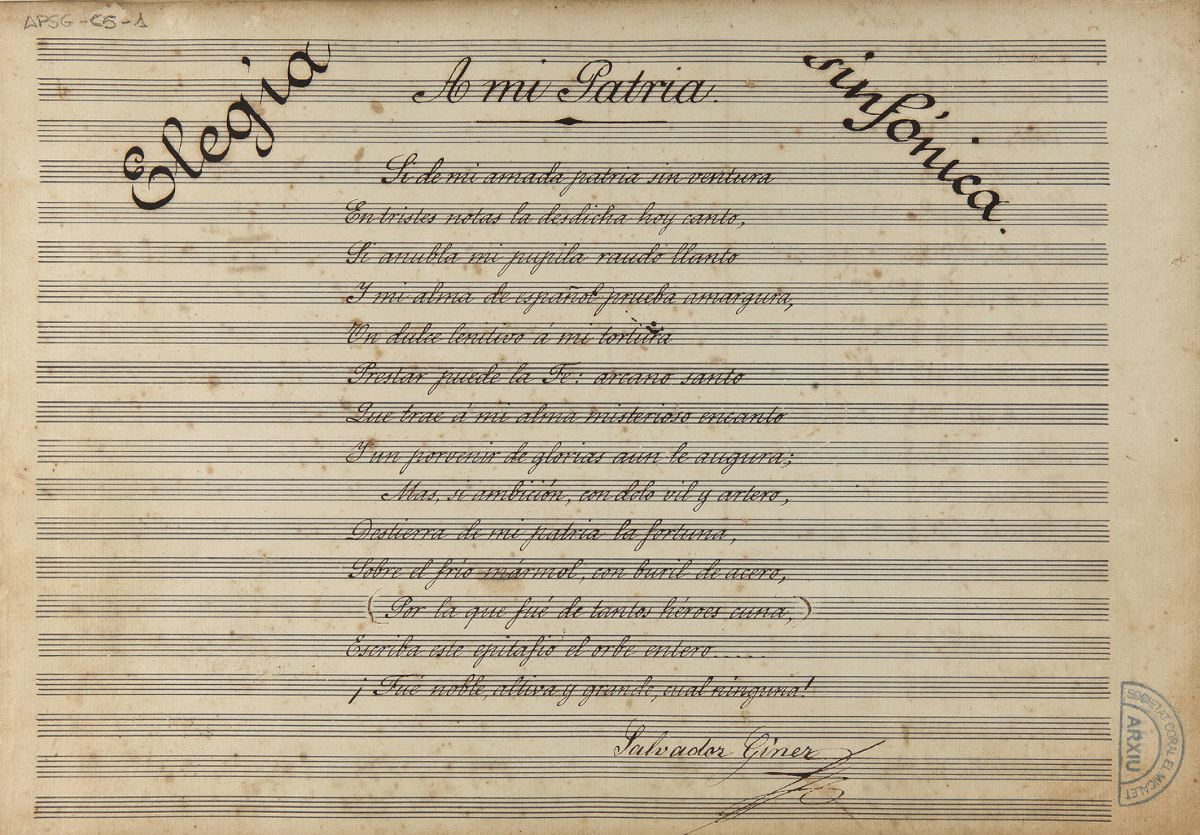 APSG-C5-1
Elegía sinfónica.
A mi Patria.
Si de mi amada patria sin ventura
En tristes notas la desdicha hoy canto,
Si anubla mi pupila raudo llanto
Y mi alma de español prueba amargura,
Un dulce lenitivo á mi tortura
Prestar puede la Fe: arcano santo
Que trae á mi alma misterioso encanto
Y un porvenir de glorias aun le augura;
Mas, si ambición, con dolo vil y artero,
Destierra de mi patria la fortuna,
Sobre el frio mármol, con buril de acero,
(Por la que fué de tantos héroes cuna,)
Escriba este epitafio el orbe entero......
¡Fué noble, altiva y grande, cual ninguna!
Salvador Giner
SOCIETAT CORAL EL MICALET
ARXIU